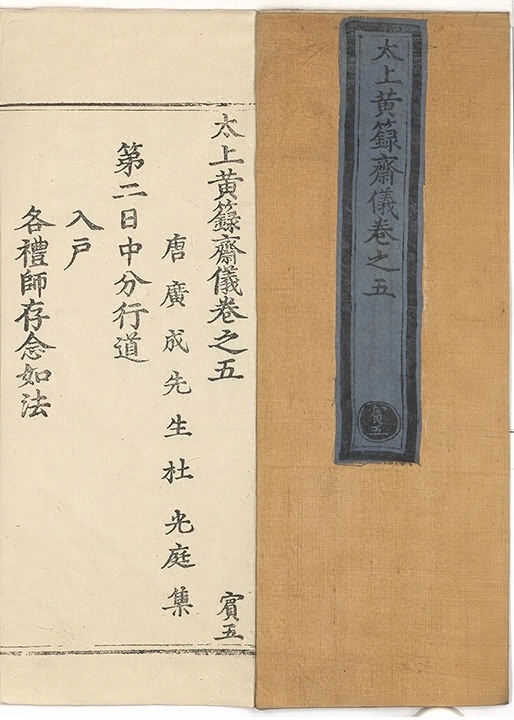 太上黃籙齋儀卷之五
賓五
太上黃籙齋儀卷之五
賓五
唐廣成先生杜光庭集
第二日中分行道
入戶
各禮師存念如法